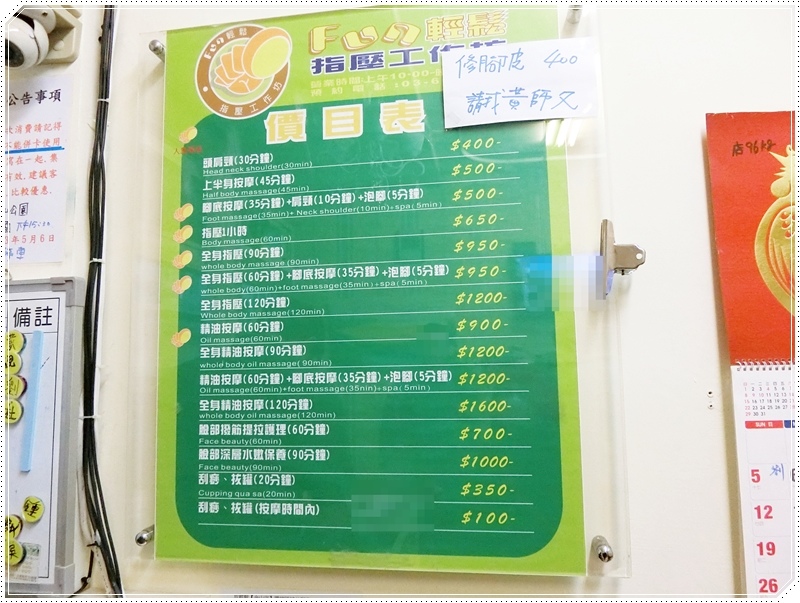 Fun輕鬆
指壓工作坊
Fun輕鬆
指壓工作坊
營業時間:上午10:00-
預約電話:03-8
修腳皮 400
請找黃師父
價目表
頭肩頸(30分鐘) $400-
Head neck shoulder(30min)
上半身按摩(45分鐘) $500-
Half body massage(45min)
腳底按摩(35分鐘)+肩頸(10分鐘)+泡腳(5分鐘) $500-
Foot massage(35min)+ Neck shoulder(10min)+spa( 5min)
指壓1小時 $650-
Body massage(60min)
全身指壓(90分鐘) $950-
whole body massage(90min)
全身指壓(60分鐘)+腳底按摩(35分鐘)+泡腳(5分鐘) $950-
whole body(60min)+foot massage(35min)+spa( 5min)
全身指壓(120分鐘) $1200-
Whole body massage(120min)
精油按摩(60分鐘) $900-
Oil massage(60min)
全身精油按摩(90分鐘) $1200-
whole body oil massage( 90min)
精油按摩(60分鐘)+腳底按摩(35分鐘)+泡腳(5分鐘) $1200-
Oil massage(60min)+foot massage(35min)+spa( 5min)
全身精油按摩(120分鐘) $1600-
whole body oil massage(120min)
臉部撥筋提拉護理(60分鐘) $700-
Face beauty(60min)
臉部深層水嫩保養(90分鐘) $1000-
Face beauty(90min)
刮痧、拔罐(20分鐘) $350-
Cupping qua sa(20min)
刮痧、拔罐(按摩時間內) $100-
公告事項
消費請記得
不能併卡使用
在一起.集
有效.建議客
比較優惠.
年5月6日
備註
店96起
5
12
19
26